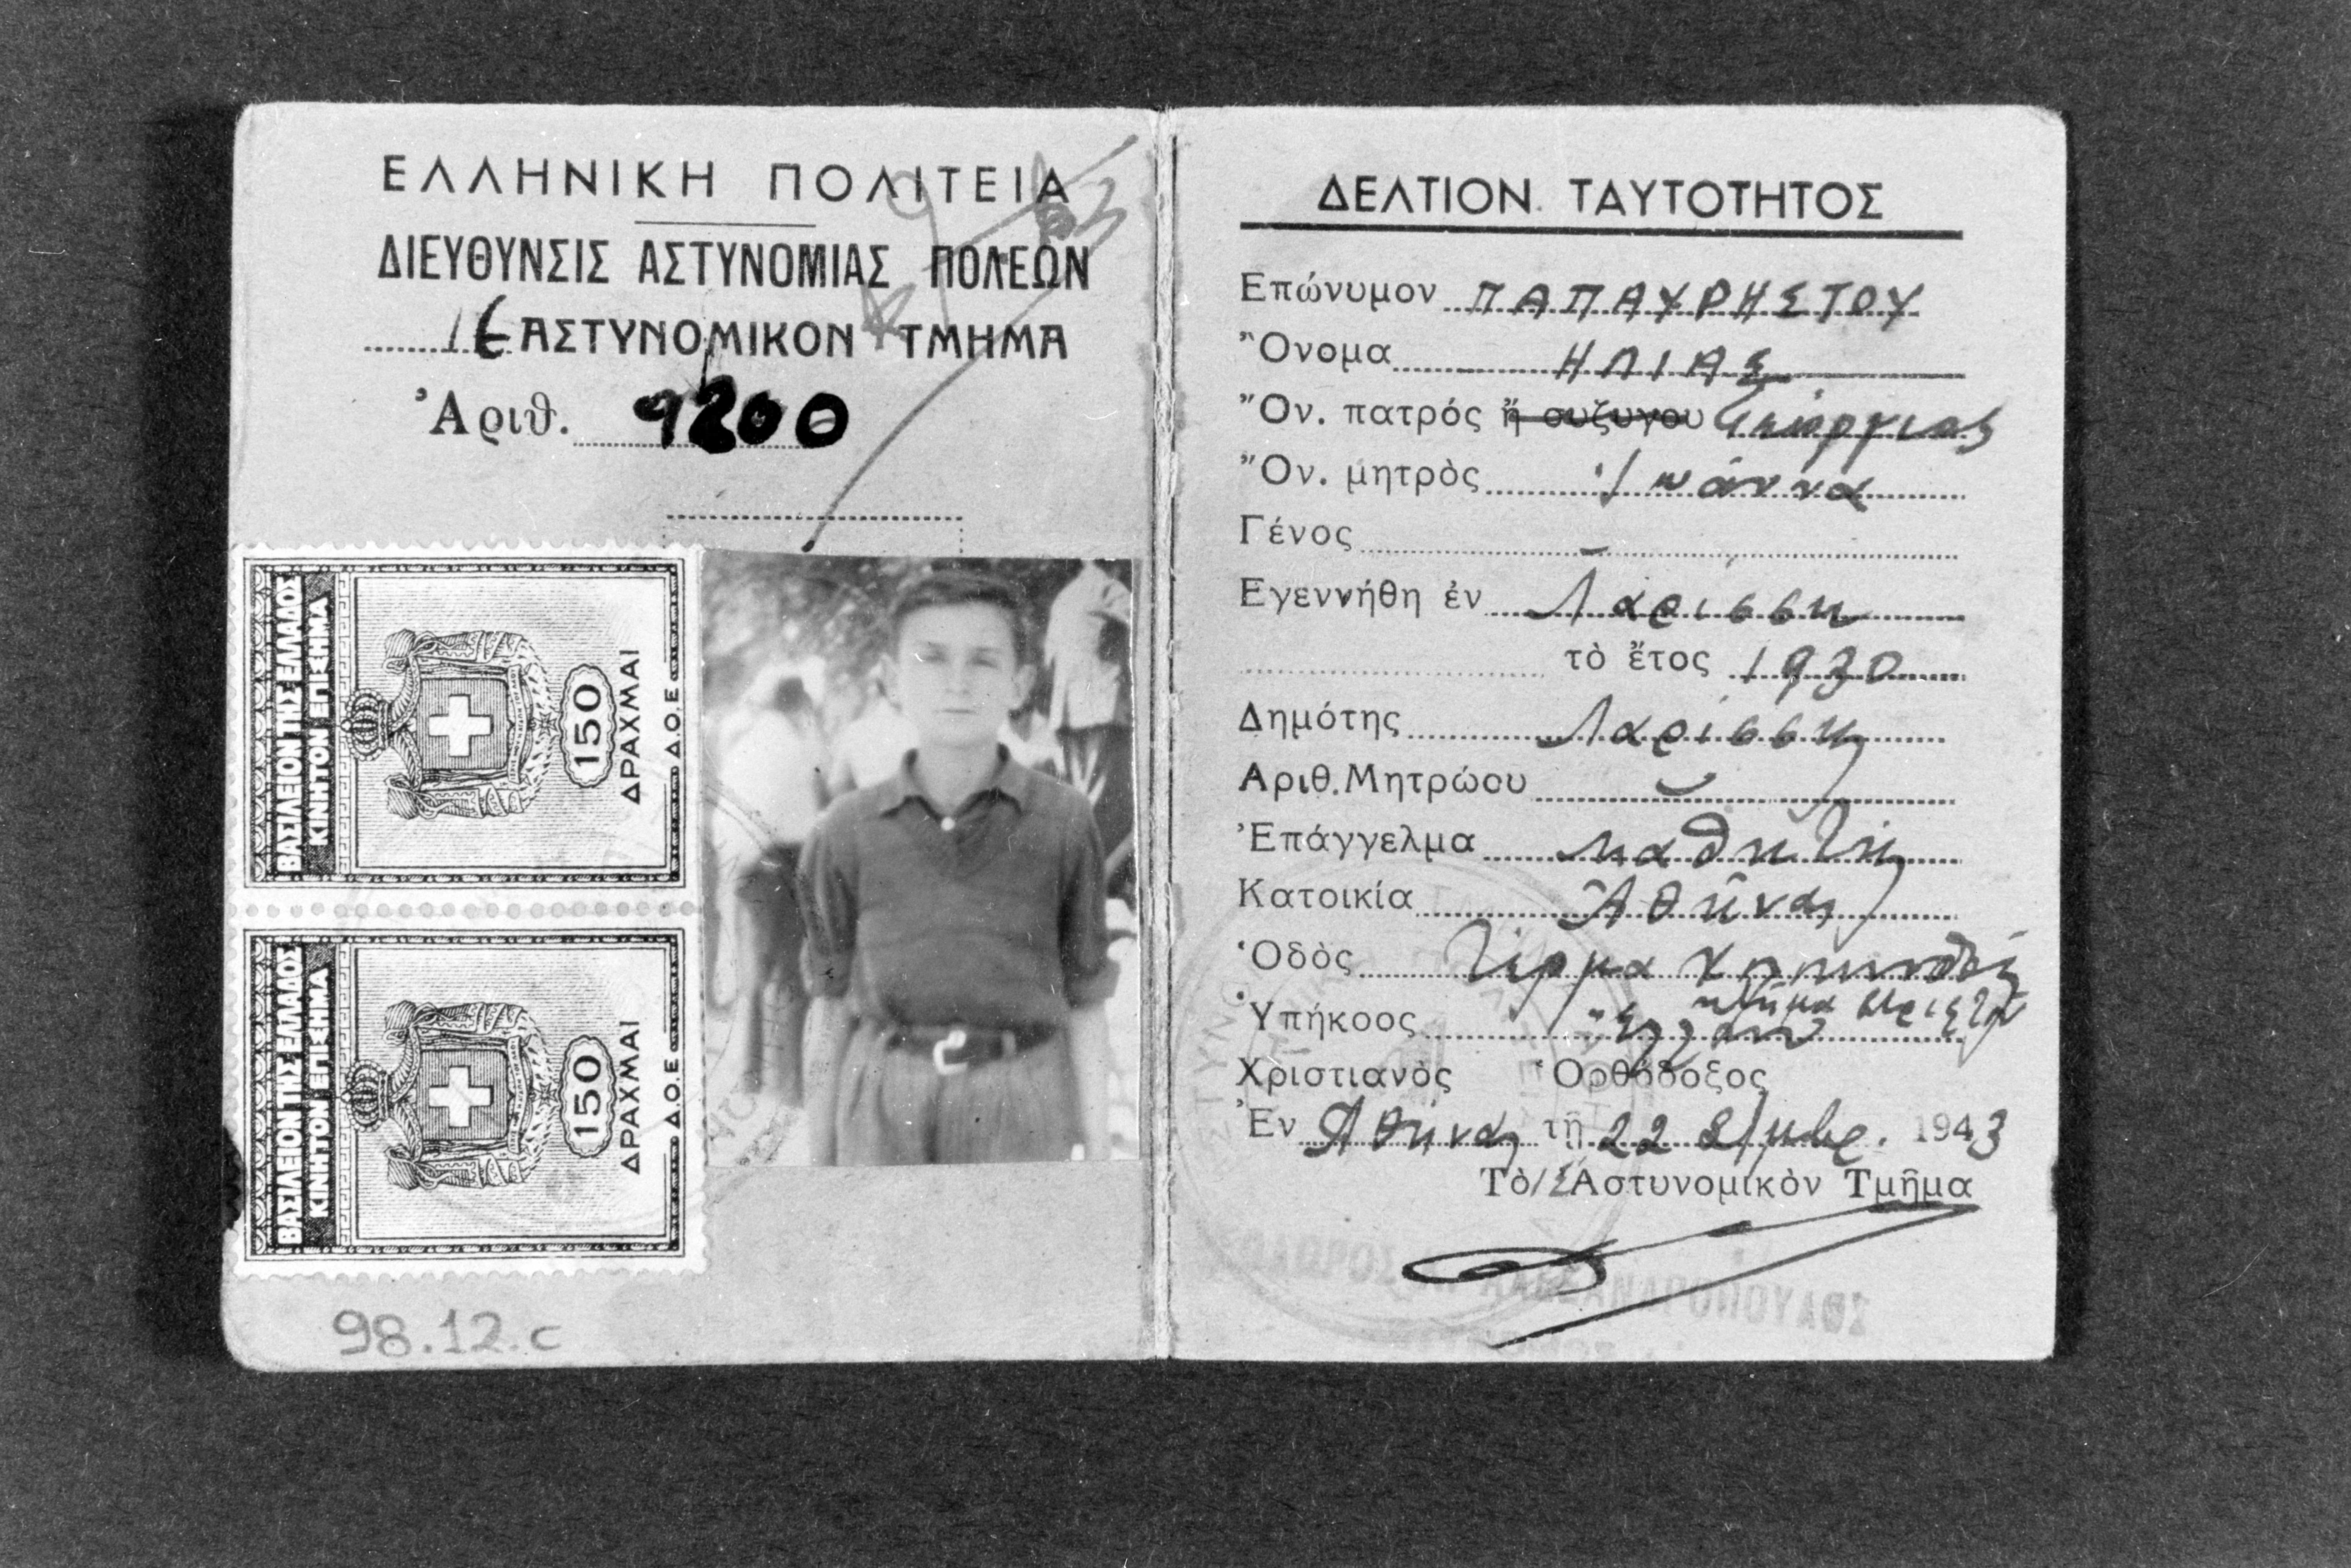 ΕΛΛΗΝΙΚΗ ΠΟΛΙΤΕΙΑ
ΔΙΕΥΘΥΝΣΙΣ ΑΣΤΥΝΟΜΙΑΣ ΠΟΛΕΩΝ
ΑΣΤΥΝΟΜΙΚΟΝ ΤΜΗΜΑ
Ἀριθ. 9200
ΒΑΣΙΛΕΙΟΝ ΤΗΣ ΕΛΛΑΔΟΣ
ΚΙΝΗΤΟΝ ΕΠΙΣΗΜΑ
150
ΔΡΑΧΜΑΙ
Δ.Ο.Ε.
ΒΑΣΙΛΕΙΟΝ ΤΗΣ ΕΛΛΑΔΟΣ
ΚΙΝΗΤΟΝ ΕΠΙΣΗΜΑ
150
ΔΡΑΧΜΑΙ
Δ.Ο.Ε.
98.12.c
ΔΕΛΤΙΟΝ ΤΑΥΤΟΤΗΤΟΣ
Επώνυμον ΠΑΠΑΧΡΗΣΤΟΥ
Ὄνομα ΗΛΙΑΣ
Ὄν. πατρός ἤ συζυγου Γεώργιος
Ὄν. μητρὸς Ἰωάννα
Γένος –
Εγεννήθη ἐν Λαρίσσῃ
τὸ ἔτος 1930
Δημότης Λαρίσσης
Αριθ. Μητρώου
Ἐπάγγελμα μαθητής
Κατοικία Ἀθῆναι
Ὁδὸς Τέρμα
κτῆμα
Ὑπήκοος Ἕλλην
Χριστιανὸς Ὀρθόδοξος
Ἐν Ἀθήναις τῇ 22 1943
Τὸ Ἀστυνομικὸν Τμῆμα